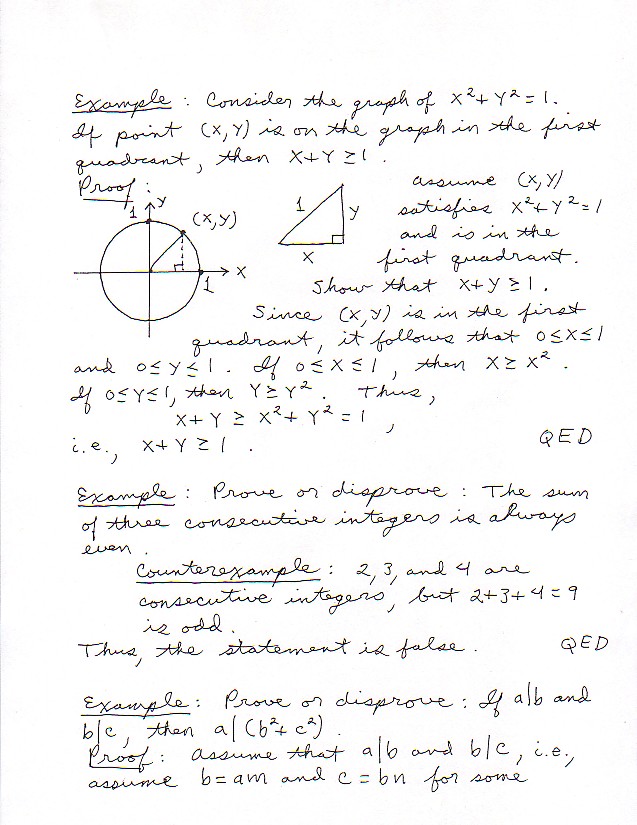 Example : Consider the graph of x²+y²=1.
If point (x,y) is on the graph in the first
quadrant, then x+y ≥ 1 .
Proof :
1 y
(x,y)
x
1
1
y
x
assume (x,y)
satisfies x²+y²=1
and is in the
first quadrant.
Show that x+y ≥ 1 .
Since (x,y) is in the first
quadrant, it follows that 0≤x≤1
and 0≤y≤1 . If 0≤x≤1 , then x≥x² .
If 0≤y≤1, then y≥y² . Thus,
x+y ≥ x²+y² = 1 ,
i.e., x+y ≥ 1 .
QED
Example : Prove or disprove : The sum
of three consecutive integers is always
even .
Counterexample : 2, 3, and 4 are
consecutive integers, but 2+3+4=9
is odd.
Thus, the statement is false .
QED
Example : Prove or disprove : If a|b and
b|c, then a|(b²+c²) .
Proof : Assume that a|b and b|c, i.e.,
assume b=am and c=bn for some